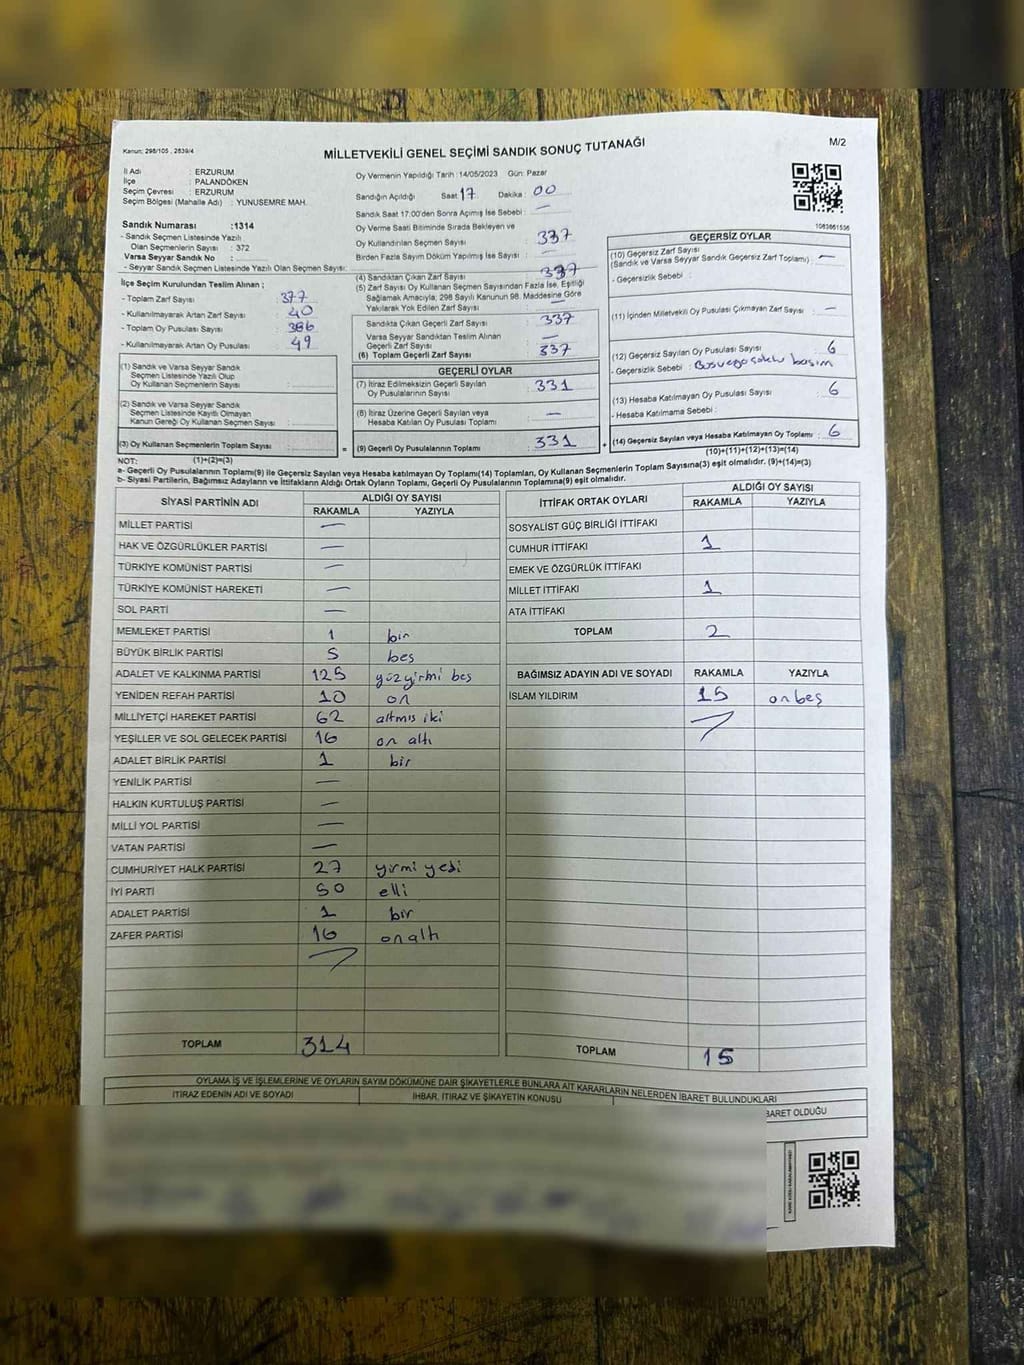 Kanun: 298/105 , 2839/4
MİLLETVEKİLİ GENEL SEÇİMİ SANDIK SONUÇ TUTANAĞI
M/2
İl Adı : ERZURUM
İlçe : PALANDÖKEN
Seçim Çevresi : ERZURUM
Seçim Bölgesi (Mahalle Adı) : YUNUSEMRE MAH.
Sandık Numarası :1314
- Sandık Seçmen Listesinde Yazılı
Olan Seçmenlerin Sayısı : 372
Varsa Seyyar Sandık No :
- Seyyar Sandık Seçmen Listesinde Yazılı Olan Seçmen Sayısı:
İlçe Seçim Kurulundan Teslim Alınan ;
- Toplam Zarf Sayısı : 377
- Kullanılmayarak Artan Zarf Sayısı : 40
- Toplam Oy Pusulası Sayısı : 386
- Kullanılmayarak Artan Oy Pusulası : 49
(1) Sandık ve Varsa Seyyar Sandık
Seçmen Listesinde Yazılı Olup
Oy Kullanan Seçmenlerin Sayısı :
(2) Sandık ve Varsa Seyyar Sandık
Seçmen Listesinde Kayıtlı Olmayan
Kanun Gereği Oy Kullanan Seçmen Sayısı :
(3) Oy Kullanan Seçmenlerin Toplam Sayısı
Oy Vermenin Yapıldığı Tarih :14/05/2023 Gün: Pazar
Sandığın Açıldığı Saat: 17 Dakika : 00
Sandık Saat 17.00'den Sonra Açılmış İse Sebebi : —
Oy Verme Saati Bitiminde Sırada Bekleyen ve
Oy Kullandırılan Seçmen Sayısı : 337
Birden Fazla Sayım Döküm Yapılmış İse Sayısı : —
(4) Sandıktan Çıkan Zarf Sayısı : 337
(5) Zarf Sayısı Oy Kullanan Seçmen Sayısından Fazla İse, Eşitliği
Sağlamak Amacıyla; 298 Sayılı Kanunun 98. Maddesine Göre
Yakılarak Yok Edilen Zarf Sayısı : —
Sandıkta Çıkan Geçerli Zarf Sayısı : 337
Varsa Seyyar Sandıktan Teslim Alınan
Geçerli Zarf Sayısı : —
(6) Toplam Geçerli Zarf Sayısı : 337
GEÇERLİ OYLAR
(7) İtiraz Edilmeksizin Geçerli Sayılan
Oy Pusulalarının Sayısı : 331
(8) İtiraz Üzerine Geçerli Sayılan veya
Hesaba Katılan Oy Pusulası Toplamı : —
= (9) Geçerli Oy Pusulalarının Toplamı : 331
1083661536
GEÇERSİZ OYLAR
(10) Geçersiz Zarf Sayısı
(Sandık ve Varsa Seyyar Sandık Geçersiz Zarf Toplamı) : —
- Geçersizlik Sebebi :
(11) İçinden Milletvekili Oy Pusulası Çıkmayan Zarf Sayısı : —
(12) Geçersiz Sayılan Oy Pusulası Sayısı : 6
- Geçersizlik Sebebi :
(13) Hesaba Katılmayan Oy Pusulası Sayısı : 6
- Hesaba Katılmama Sebebi :
+ (14) Geçersiz Sayılan veya Hesaba Katılmayan Oy Toplamı : 6
NOT: (1)+(2)=(3)
(10)+(11)+(12)+(13)=(14)
a- Geçerli Oy Pusulalarının Toplamı(9) ile Geçersiz Sayılan veya Hesaba katılmayan Oy Toplamı(14) Toplamları, Oy Kullanan Seçmenlerin Toplam Sayısına(3) eşit olmalıdır. (9)+(14)=(3)
b- Siyasi Partilerin, Bağımsız Adayların ve İttifakların Aldığı Ortak Oyların Toplamı, Geçerli Oy Pusulalarının Toplamına(9) eşit olmalıdır.
SİYASİ PARTİNİN ADI ALDIĞI OY SAYISI
RAKAMLA YAZIYLA
MİLLET PARTİSİ —
HAK VE ÖZGÜRLÜKLER PARTİSİ —
TÜRKİYE KOMÜNİST PARTİSİ —
TÜRKİYE KOMÜNİST HAREKETİ —
SOL PARTİ —
MEMLEKET PARTİSİ 1 bir
BÜYÜK BİRLİK PARTİSİ 5 beş
ADALET VE KALKINMA PARTİSİ 125 yüzyirmi beş
YENİDEN REFAH PARTİSİ 10 on
MİLLİYETÇİ HAREKET PARTİSİ 62 altmış iki
YEŞİLLER VE SOL GELECEK PARTİSİ 16 on altı
ADALET BİRLİK PARTİSİ 1 bir
YENİLİK PARTİSİ —
HALKIN KURTULUŞ PARTİSİ —
MİLLİ YOL PARTİSİ —
VATAN PARTİSİ —
CUMHURİYET HALK PARTİSİ 27 yirmi yedi
İYİ PARTİ 50 elli
ADALET PARTİSİ 1 bir
ZAFER PARTİSİ 16 on altı
TOPLAM 314
İTTİFAK ORTAK OYLARI ALDIĞI OY SAYISI
RAKAMLA YAZIYLA
SOSYALİST GÜÇ BİRLİĞİ İTTİFAKI
CUMHUR İTTİFAKI 1
EMEK VE ÖZGÜRLÜK İTTİFAKI
MİLLET İTTİFAKI 1
ATA İTTİFAKI
TOPLAM 2
BAĞIMSIZ ADAYIN ADI VE SOYADI RAKAMLA YAZIYLA
İSLAM YILDIRIM 15 on beş
TOPLAM 15
OYLAMA İŞ VE İŞLEMLERİNE VE OYLARIN SAYIM DÖKÜMÜNE DAİR ŞİKAYETLERLE BUNLARA AİT KARARLARIN NELERDEN İBARET BULUNDUKLARI
İTİRAZ EDENİN ADI VE SOYADI İHBAR, İTİRAZ VE ŞİKAYETİN KONUSU
BARET OLDUĞU